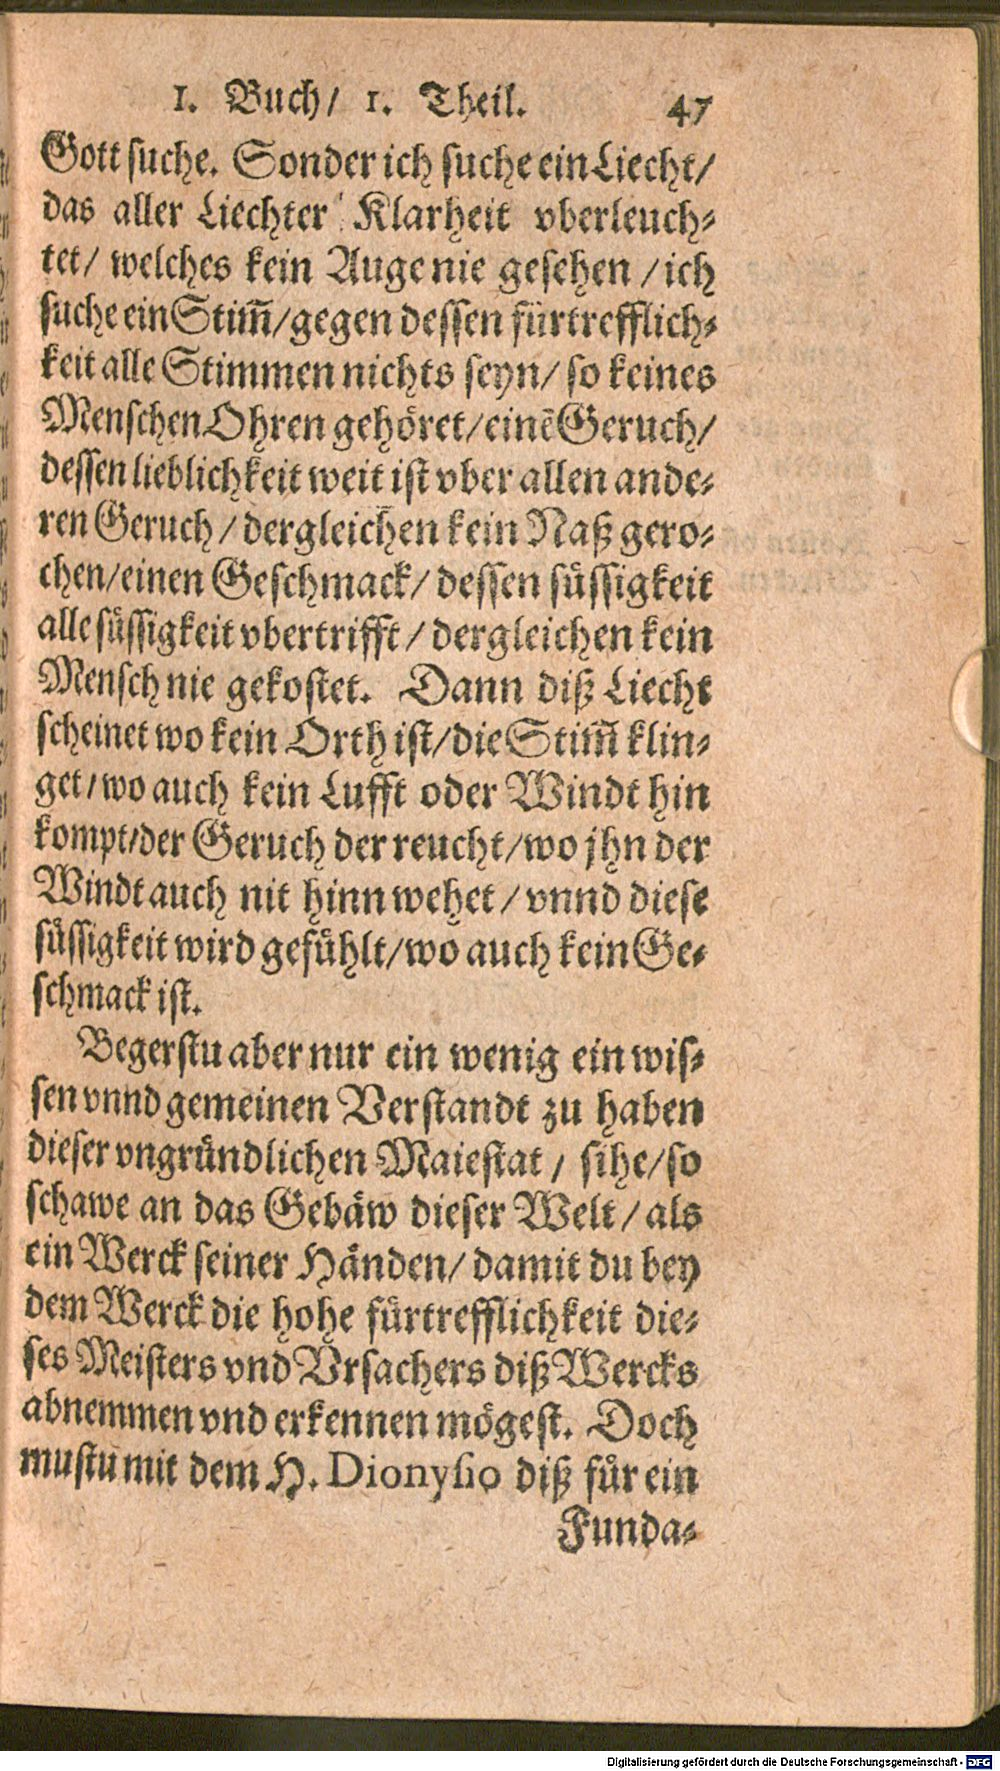 1. Buch/ 1. Theil. 47
Gott suche. Sonder ich suche ein Liecht/
das aller Liechter Klarheit vberleuch-
tet/ welches kein Auge nie gesehen / ich
suche ein Stim̃/ gegen dessen fürtrefflich-
keit alle Stimmen nichts seyn/ so keines
Menschen Ohren gehöret/ einẽ Geruch/
dessen lieblichkeit weit ist vber allen ande-
ren Geruch / dergleichen kein Naß gero-
chen/ einen Geschmack/ dessen süssigkeit
alle süssigkeit vbertrifft / dergleichen kein
Mensch nie gekostet. Dann diß Liecht
scheinet wo kein Orth ist/ die Stim̃ klin-
get/ wo auch kein Lufft oder Windt hin
kompt/ der Geruch der reucht/ wo jhn der
Windt auch nit hinn wehet / vnnd diese
süssigkeit wird gefühlt/ wo auch kein Ge-
schmack ist.
Begerstu aber nur ein wenig ein wis-
sen vnnd gemeinen Verstandt zu haben
dieser vngründlichen Maiestat / sihe/ so
schawe an das Gebäw dieser Welt / als
ein Werck seiner Händen/ damit du bey
dem Werck die hohe fürtrefflichkeit die-
ses Meisters vnd Vrsachers diß Wercks
abnemmen vnd erkennen mögest. Doch
mustu mit dem H. Dionysio diß für ein
Funda-
Digitalisierung gefördert durch die Deutsche Forschungsgemeinschaft - DFG